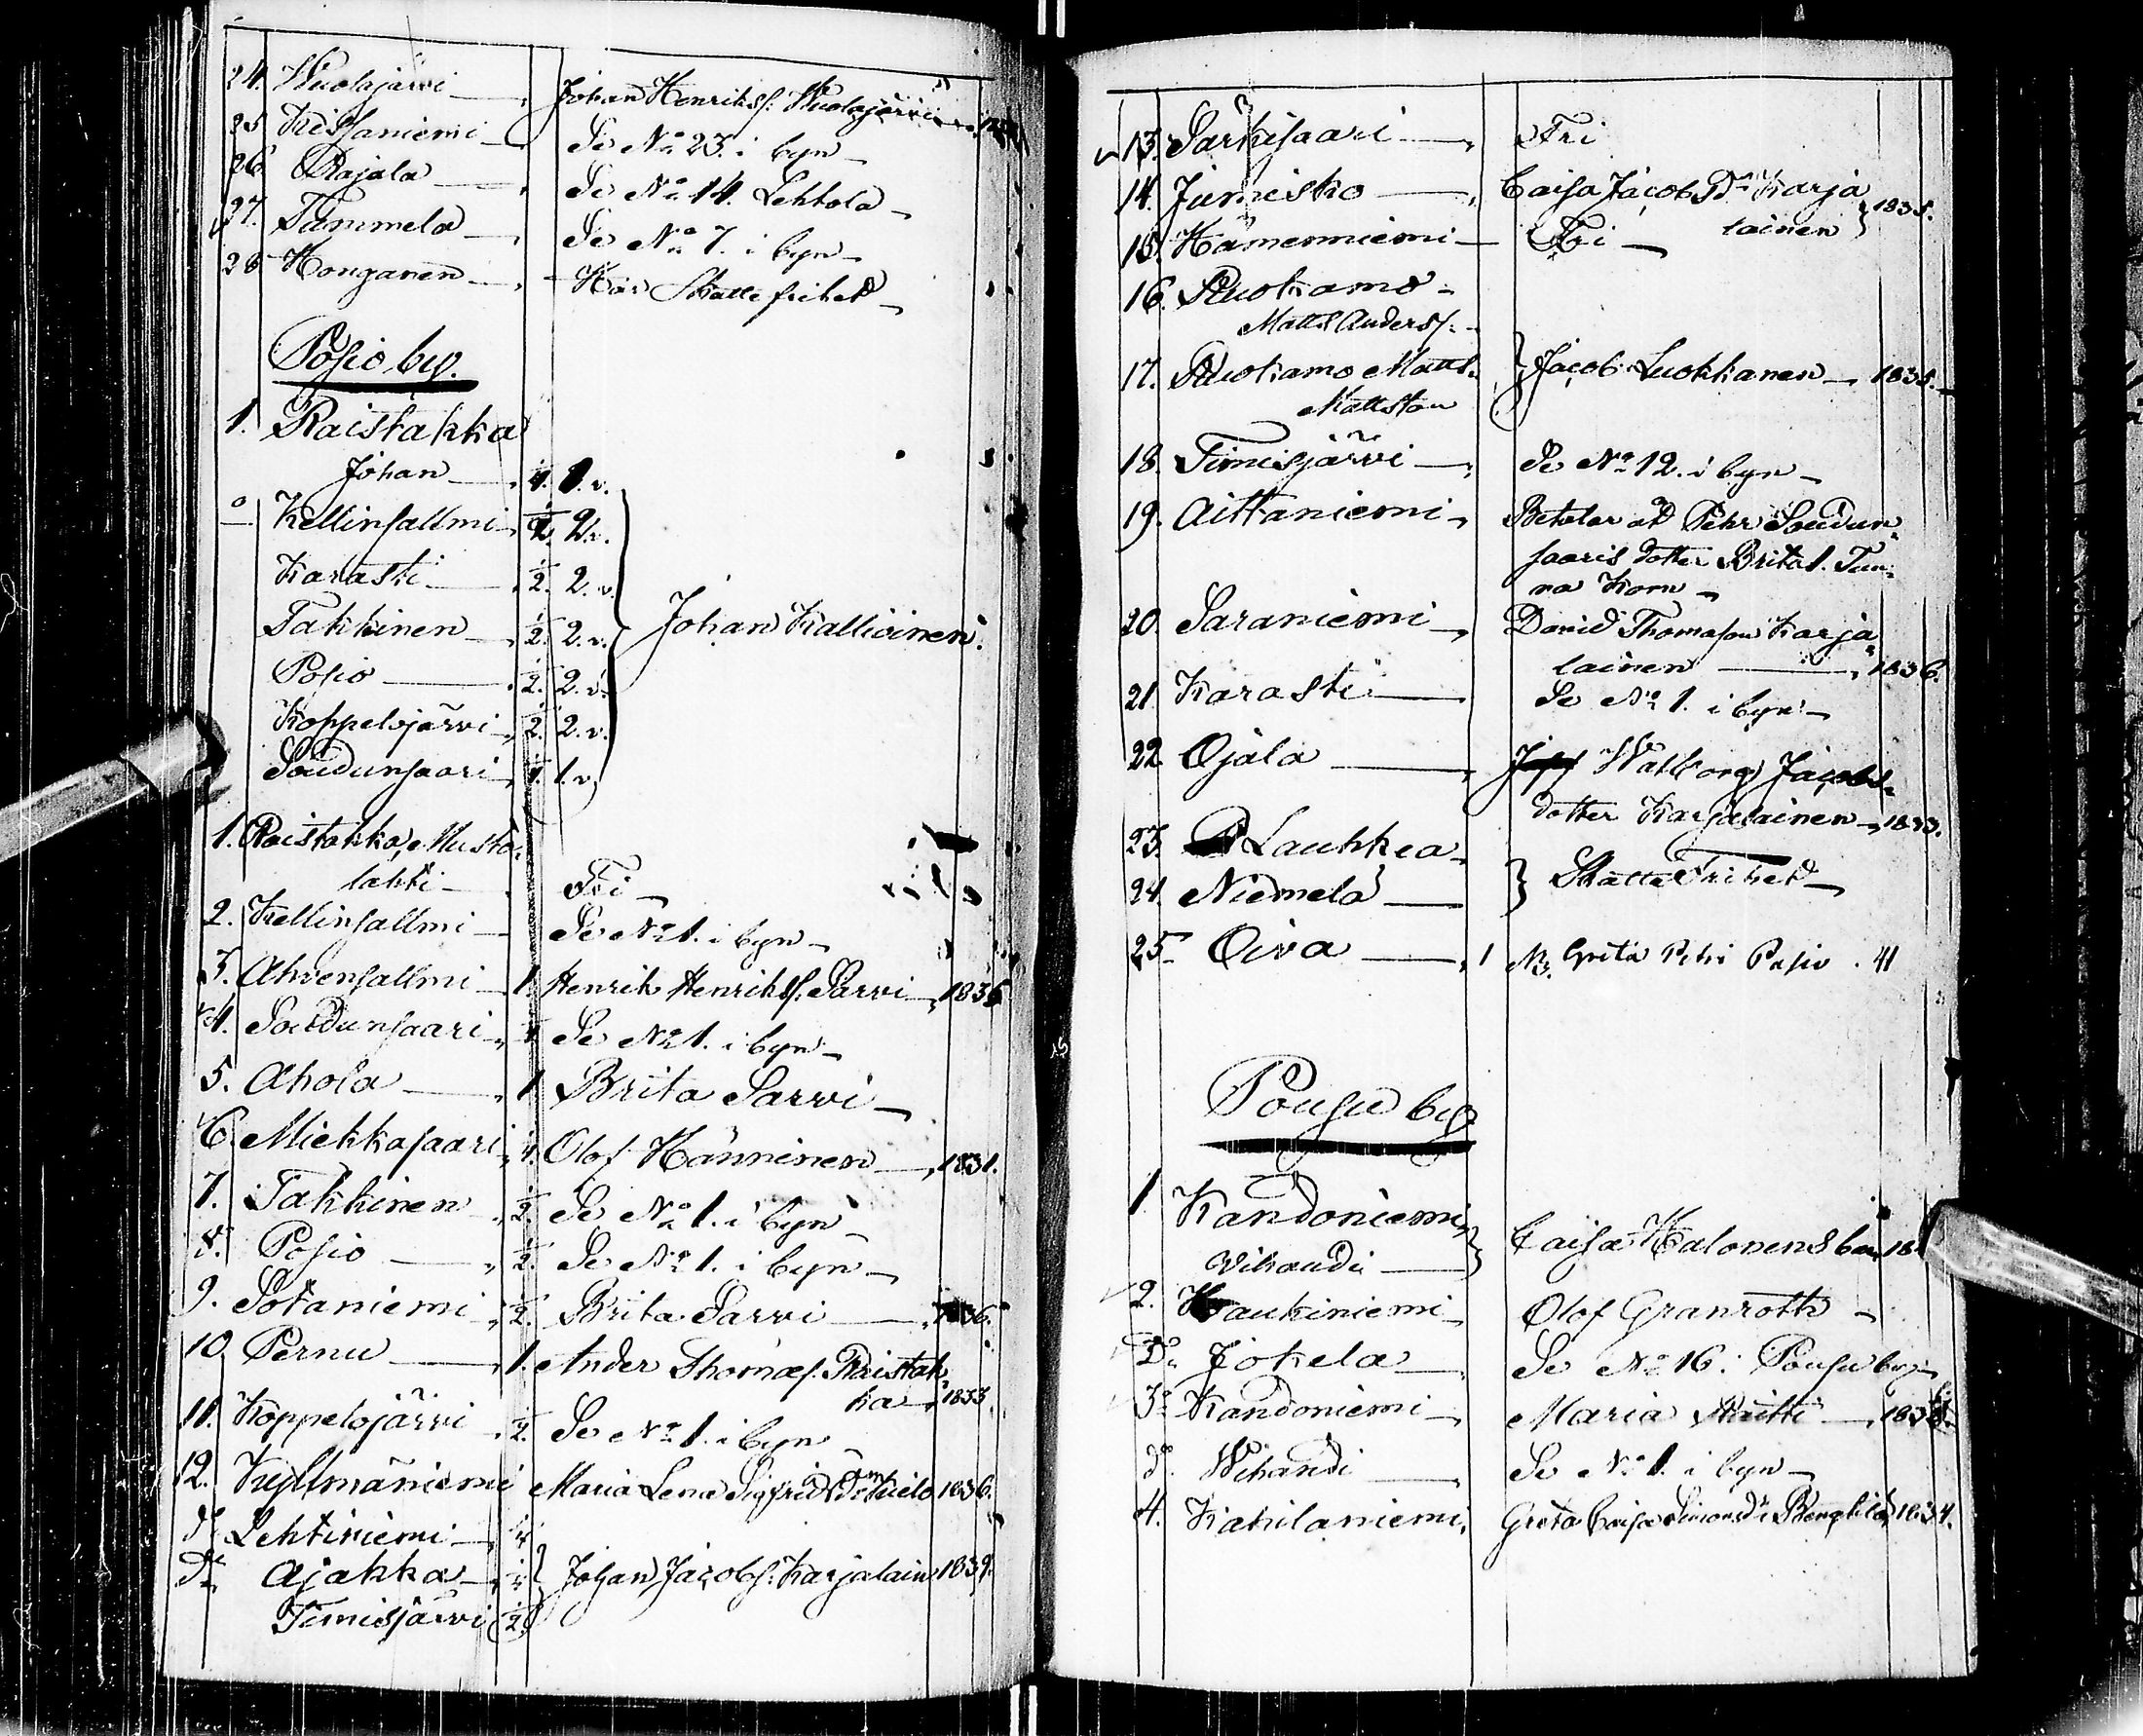 24. Wuolajärvi — Johan Henrikss. Wuolajärvi
25 Kissaniemi — Se No 23. i byn —
26 Rajala — Se No 14. Lehtola —
27. Tammela — Se No 7. i byn —
28 Honganen — Har Skatte frihet —
Posio by.
1. Raistakka
Johan — 1. v.
Kellinsallmi 2. v.
Karasti — 1/2. 2. v.
Takkinen — 1/2. 2. v.
Johan Kallioinen.
Posio — 1/2. 2. v.
Koppelojärvi — 1/2. 2. v.
Soudunsaari 1. v.
1. Raistakka, Musta-
lahti — Fri —
2. Kellinsallmi — Se No 1. i byn —
3. Ahvensallmi — 1. Henrik Henrikss. Särvi — 1836
4. Soudunsaari — Se No 1. i byn —
5. Ahola — 1 Brita Sarvi —
6. Miehkasaari Olof Hänninen — 1831.
7. Takkinen 1/2. Se No 1. i byn —
8. Posio — 1/2. Se No 1. i byn —
9. Sotaniemi 1/2. Brita Sarvi —
10 Pernu — 1. Ander Thomas. Raistak-
ka 1833.
11. Koppelojärvi 1/2. Se No 1. i byn —
12. Kyllmäniemi Maria Lena Sigfrids Dr 1836.
Do Lehtiniemi —
Do Ajakka — Johan Jacobs. Karjalain 1839.
Timisjärvi 1/2
13. Särkisaari — Fri
14. Jumisko — Caisa Jacobs Dr Karja
lainen } 1835.
15. Hämenniemi — Fri —
16. Ruokamo -
Matts Anderss. -
17. Ruokamo Matts. } Jacob Luokkanen — 1835.
Mattsson
18. Timisjärvi — Se No 12. i byn —
19. Aittaniemi — Betalar åt Pehr Soudun-
saaris dotter Brita 1. Tun-
na Korn —
20. Saraniemi — David Thomasson Karja
lainen — 1836.
21. Karasti — Se No 1. i byn —
22. Ojala — Walborg Jacobs-
dotter Karjalainen — 1833.
23. Lauhkea —
24. Niemelä — } Skatte Frihet —
25 Oiva — 1 Grita Petri Posio . 41
Pousu by
1 Kandoniemi
Vihandi — } Caisa Halonens barn 18
2. Haukiniemi Olof Granroth —
Do Jokela — Se No 16. Pousu by —
3. Kandoniemi — Maria
do Wihandi — Se No 1. i byn —
4. Kahilaniemi Greta Caisa Simonsdr 1834.